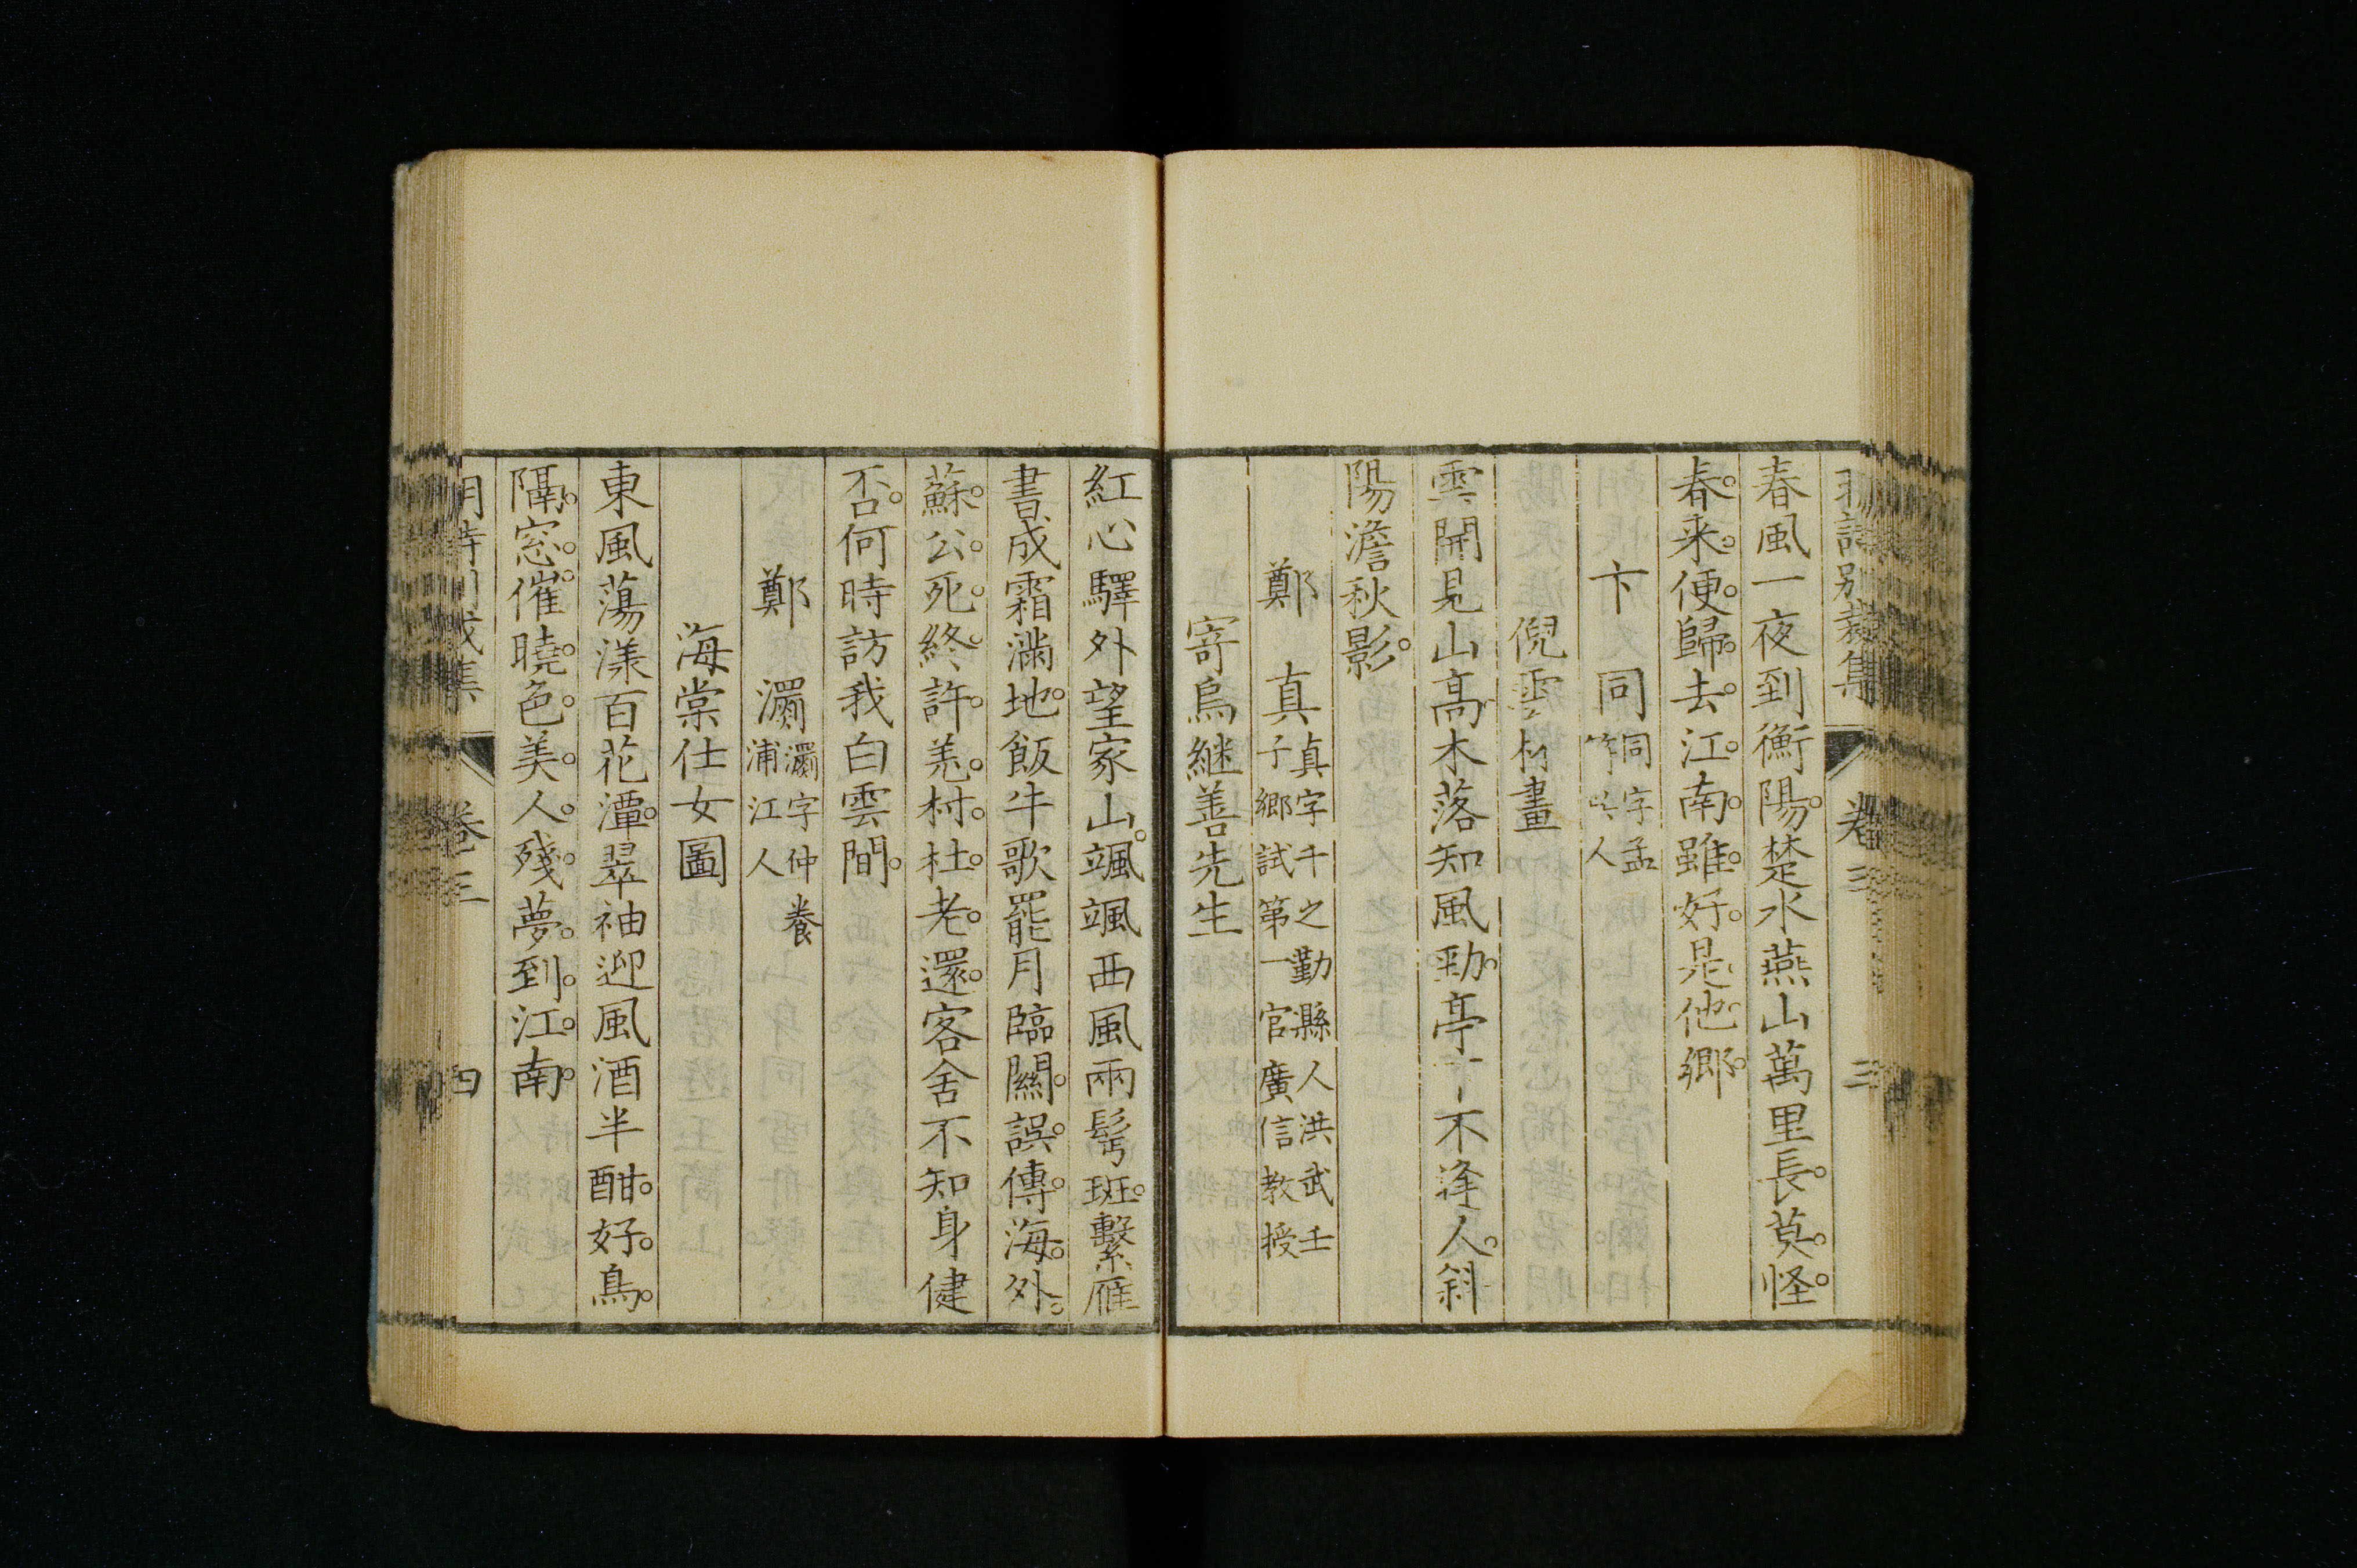 明詩別裁集 卷三 三
春風一夜到衡陽楚水燕山萬里長莫怪
春来便歸去江南雖好是他鄉
卞同 同字孟 人
倪雲林畫
雲開見山高木落知風勁亭下不逢人斜
陽澹秋影
鄭真 真字千之勤縣人洪武壬子鄉試第一官廣信教授
寄烏継善先生
紅心驛外望家山颯颯西風兩鬂斑繫雁
書成霜滿地飯牛歌罷月臨關誤傳海外
蘇公死終許羌村杜老還客舍不知身健
否何時訪我白雲間
鄭灟 灟字仲養浦江人
海棠仕女圖
東風蕩漾百花潭翠袖迎風酒半酣好鳥
隔窓催曉色美人殘夢到江南
明詩別裁集 卷三 四